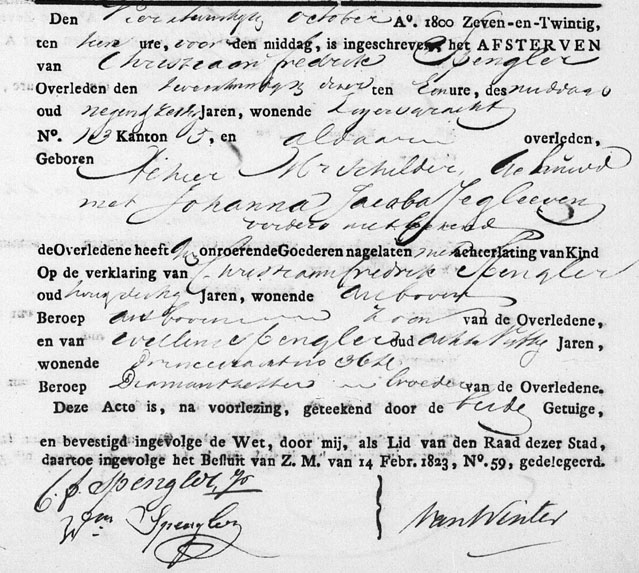 Den Vierentwintigste October A°. 1800 Zeven-en-Twintig,
ten tien ure, voor den middag, is ingeschreven het AFSTERVEN
van Christiaan fredrik Spengler
Overleden den ten Eenure, des middags
oud negen zestig Jaren, wonende Keyzersgracht
N°. 113 Kanton 5, en aldaar overleden,
Geboren Alhier Mr Schilder, Gehuwd
met Johanna Jacoba Tegleeven
verders niet bekend
de Overledene heeft onroerende Goederen nagelaten met achterlating van Kind
Op de verklaring van Christiaan fredrik Spengler
oud Jaren, wonende als boven
Beroep als boven Zoon van de Overledene,
en van Spengler oud acht Vyftig Jaren,
wonende Prince no
Beroep broeder van de Overledene.
Deze Acte is, na voorlezing, geteekend door de beide Getuige,
en bevestigd ingevolge de Wet, door mij, als Lid van den Raad dezer Stad,
daartoe ingevolge het Besluit van Z. M. van 14 Febr. 1823, N°. 59, gedelegeerd.
C. f. Spengler, Jr
Wm Spengler
van Winter